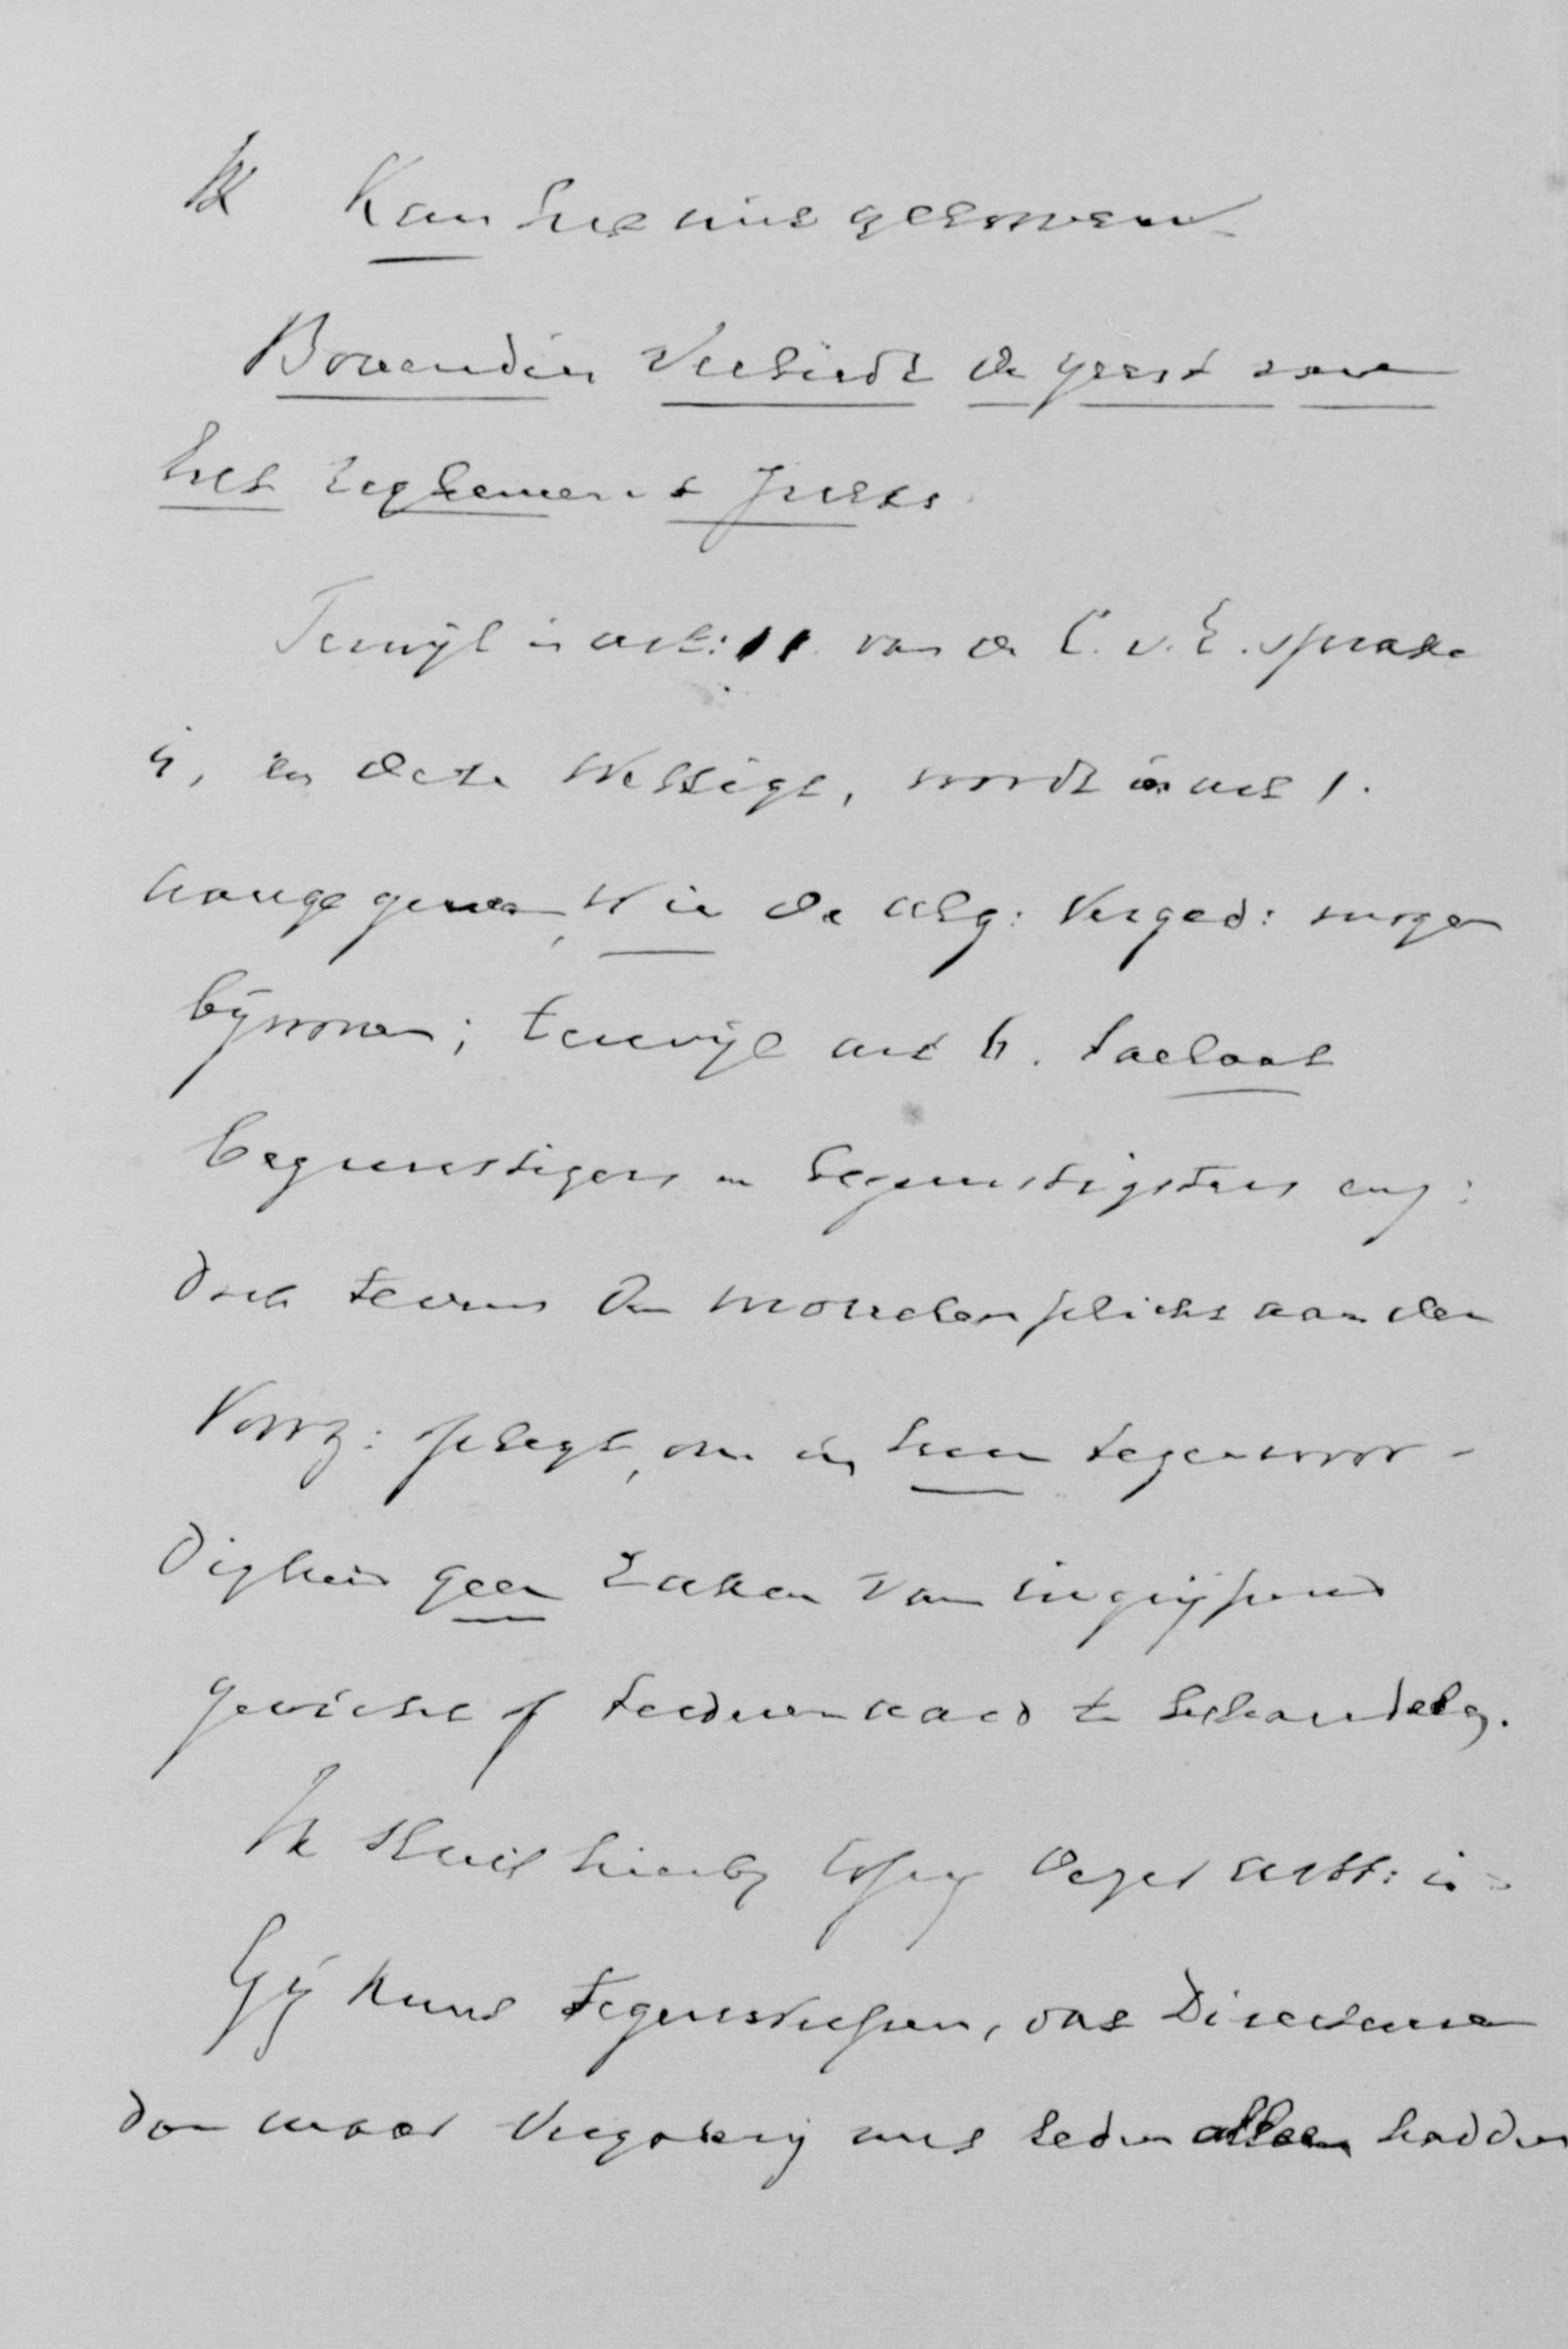 Ik Kan het niet gelooven
Bovendien Verbiedt de geest van
het reglement zulks.
Terwijl in art: 11 van de C. v. E. sprake
is, en deze wettigt, wordt in art 1.
aangegeven, Wie de Alg: Verged: mogen
bijwonen; terwijl art 6. toelaat
begunstigers en begunstigsters enz:
doch tevens den moreelen plicht aan den
Voorz: oplegt, om in hun tegenwoor-
digheid geen zaken van ingrijpend
gewicht of teederen aard te behandelen.
Ik sluit hierbij dezer artt: in.
Gij kunt tegenwerpen, dat Directeuren
dan maar Vergadering met leden alleen hadden